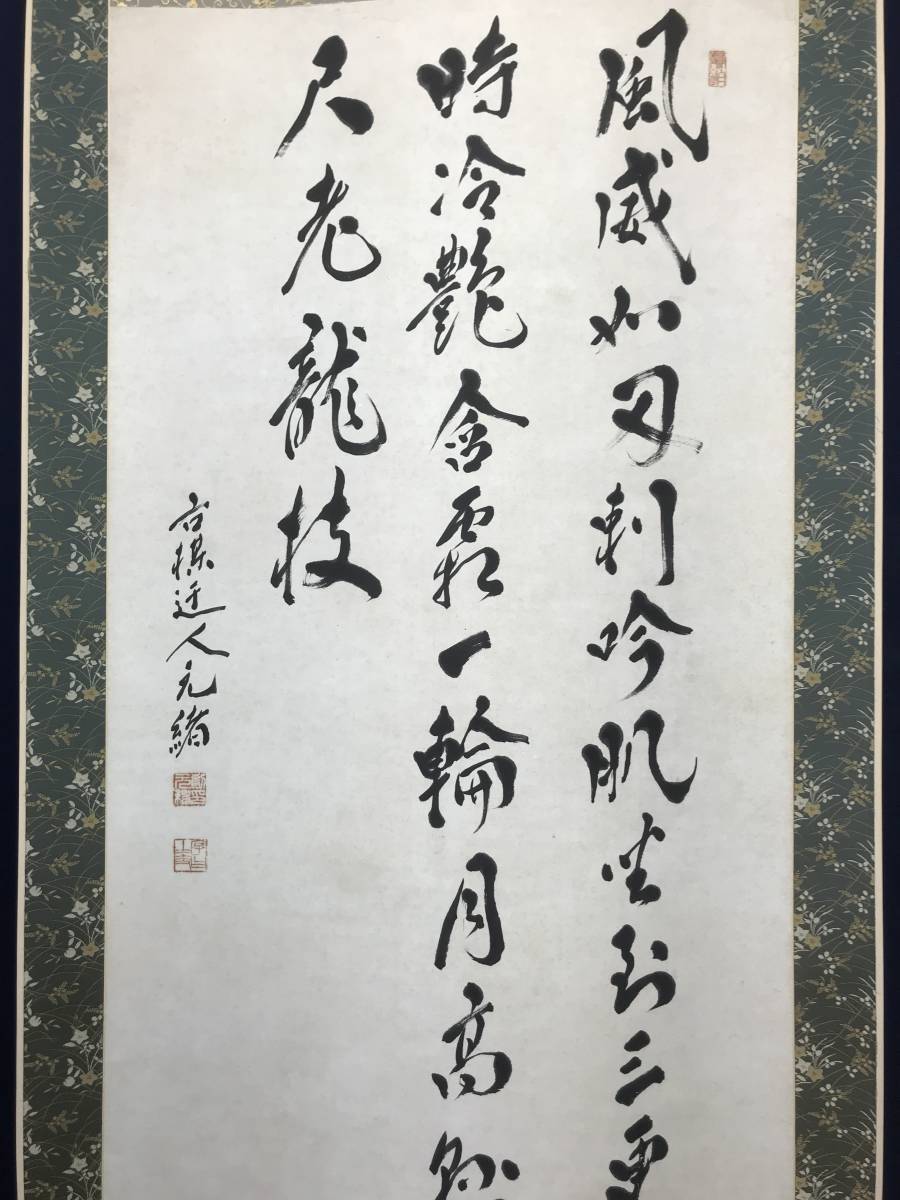 風威如刃刺吟肌坐到三更
時冷艷含霜一輪月高懸
尺老龍枝
迂人元緒